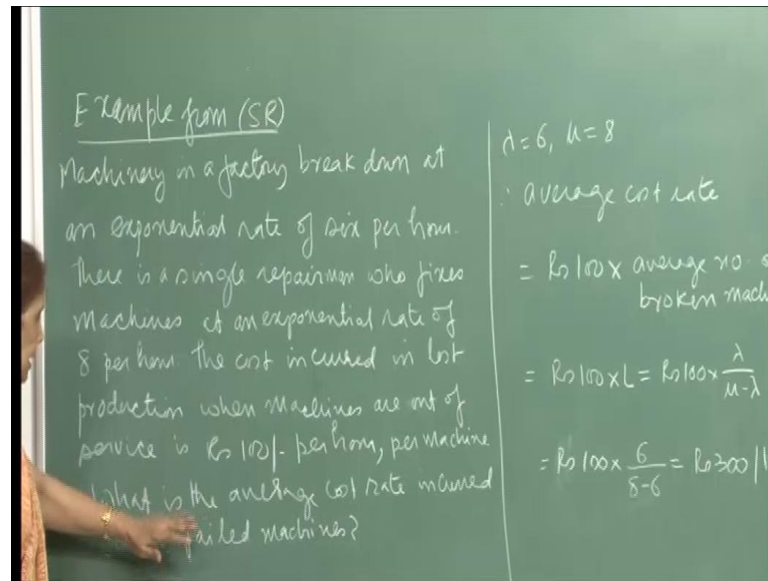 Example from (SR)
Machinery in a factory break down at
an exponential rate of six per hour.
There is a single repairman who fixes
machines at an exponential rate of
8 per hour. The cost incurred in lost
production when machines are out of
service is Rs 100/- per hour, per machine
What is the average cost rate incurred
failed machines?
λ=6, μ=8
∴ average cost rate
= Rs 100 × average no.
broken
= Rs 100 × L = Rs 100 × λ/(μ-λ)
= Rs 100 × 6/(8-6) = Rs 300/